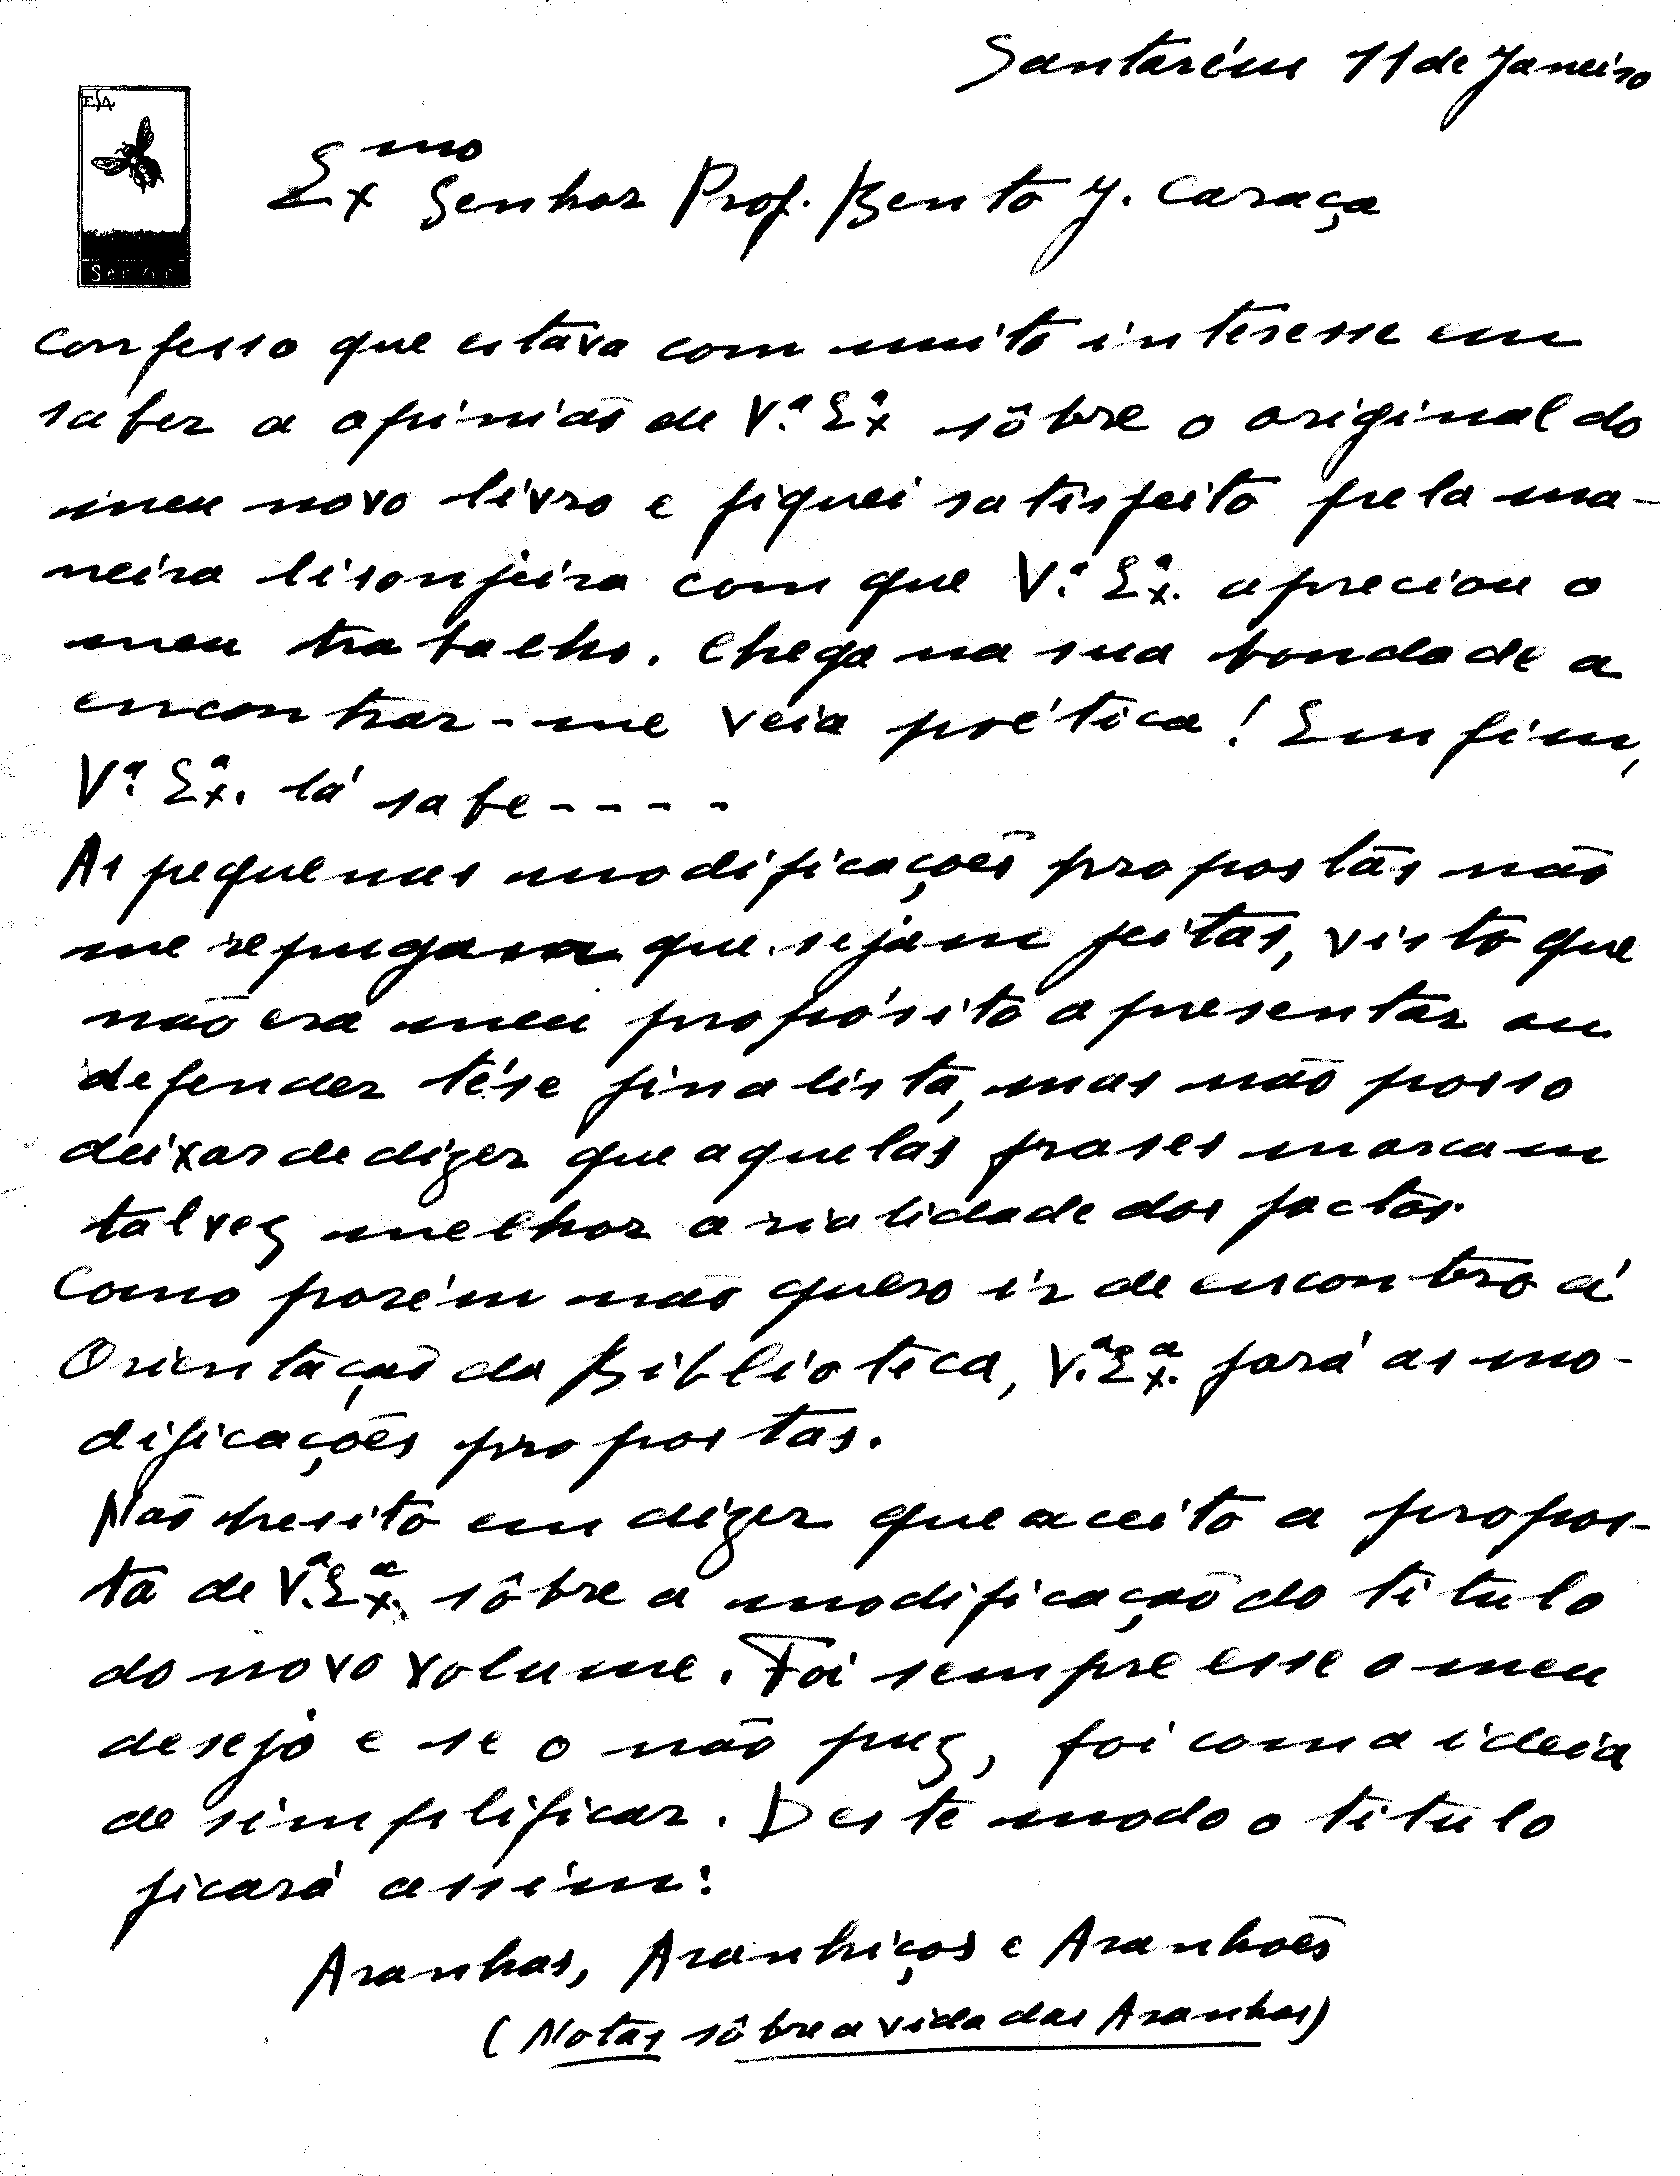 Santarém 11 de Janeiro
ESA
Exmo Senhor Prof. Bento J. Caraça
Confesso que estava com muito interesse em
saber a opinião de V.ª Exª sôbre o original do
meu novo livro e fiquei satisfeito pela ma-
neira lisonjeira com que V.ª Exª. apreciou o
meu trabalho. Chega na sua bondade a
encontrar-me veia poética! Emfim,
V.ª Exª. lá sabe - - - -
As pequenas modificações propostas não
me repugna que sejam feitas, visto que
não era meu propósito apresentar ou
defender tése finalista, mas não posso
deixar de dizer que aquelas frases marcam
talvez melhor a rialidade dos factos.
Como porém não quero ir de encontro á
Orientação da Biblioteca, V.ª Exª. fará as mo-
dificações propostas.
Não hesito em dizer que aceito a propos-
ta de V.ª Exª. sôbre a modificação do titulo
do novo volume. Foi sempre esse o meu
desejo e se o não puz, foi com a ideia
de simplificar. Deste modo o titulo
ficará assim:
Aranhas, Aranhiços e Aranhões
(Notas sôbre a vida das Aranhas)